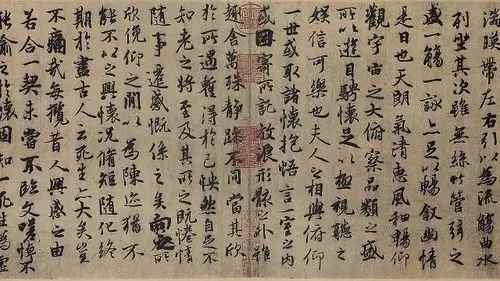 湍暎帶左右引以為流觴曲水
列坐其次雖無絲竹管弦之
盛一觴一詠亦足以暢敘幽情
是日也天朗氣清惠風和暢仰
觀宇宙之大俯察品類之盛
所以遊目騁懷足以極視聽之
娛信可樂也夫人之相與俯仰
一世或取諸懷抱悟言一室之內
或因寄所託放浪形骸之外雖
趣舍萬殊靜躁不同當其欣
於所遇蹔得於己怏然自足不
知老之將至及其所之既惓情
隨事遷感慨係之矣向之所
欣俛仰之閒以為陳迹猶不
能不以之興懷況脩短隨化終
期於盡古人云死生亦大矣豈
不痛哉每攬昔人興感之由
若合一契未嘗不臨文嗟悼不
能喻之於懷固知一死生為虛